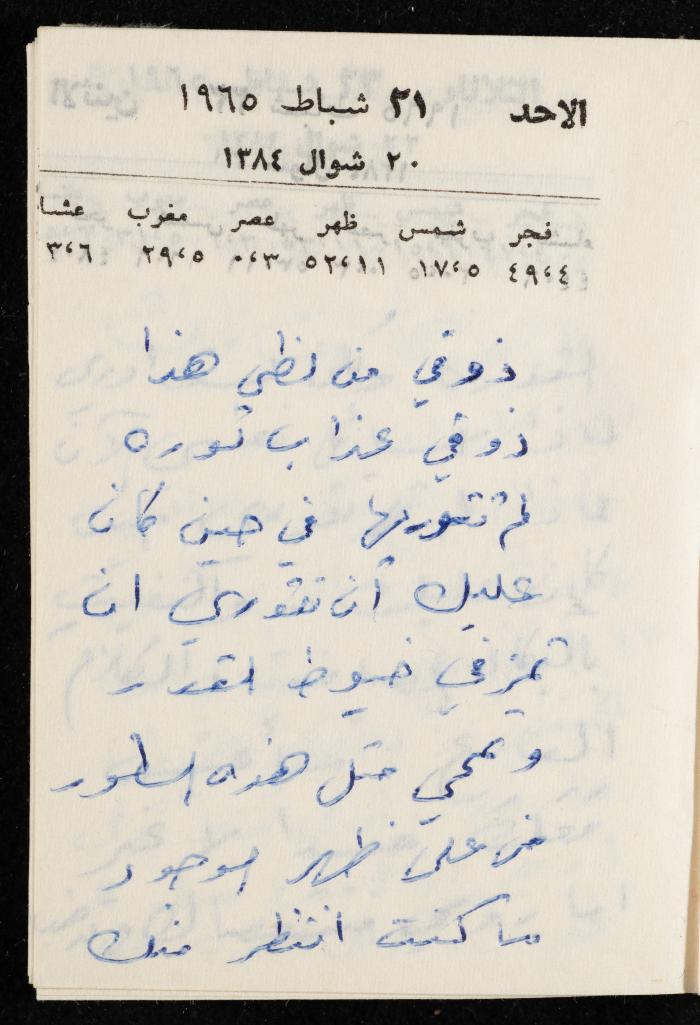 الاحد ٢١ شباط ١٩٦٥
٢٠ شوال ١٣٨٤
فجر شمس ظهر عصر مغرب عشا
٤،٤٩ ٥،١٧ ١١،٥٢ ٣،٠ ٥،٢٩ ٦،٣
ذوقي من لظي هذا
ذوقي عذاب ثوره
لم تثوريها في حين كان
عليك أن تثوري ان
تمزقي خيوط القدر
وتمحي مثل هذه السطور
من على ظهر الوجود
ما كنت انتظر منك